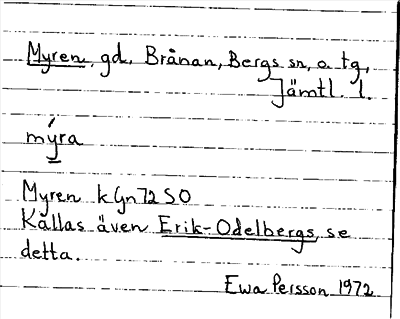 Myren, gd, Brånan, Bergs sn, o. tg,
Jämtl. l.
mýra
Myren k Gn 72 SO
Kallas även Erik-Odelbergs, se
detta.
Ewa Persson 1972